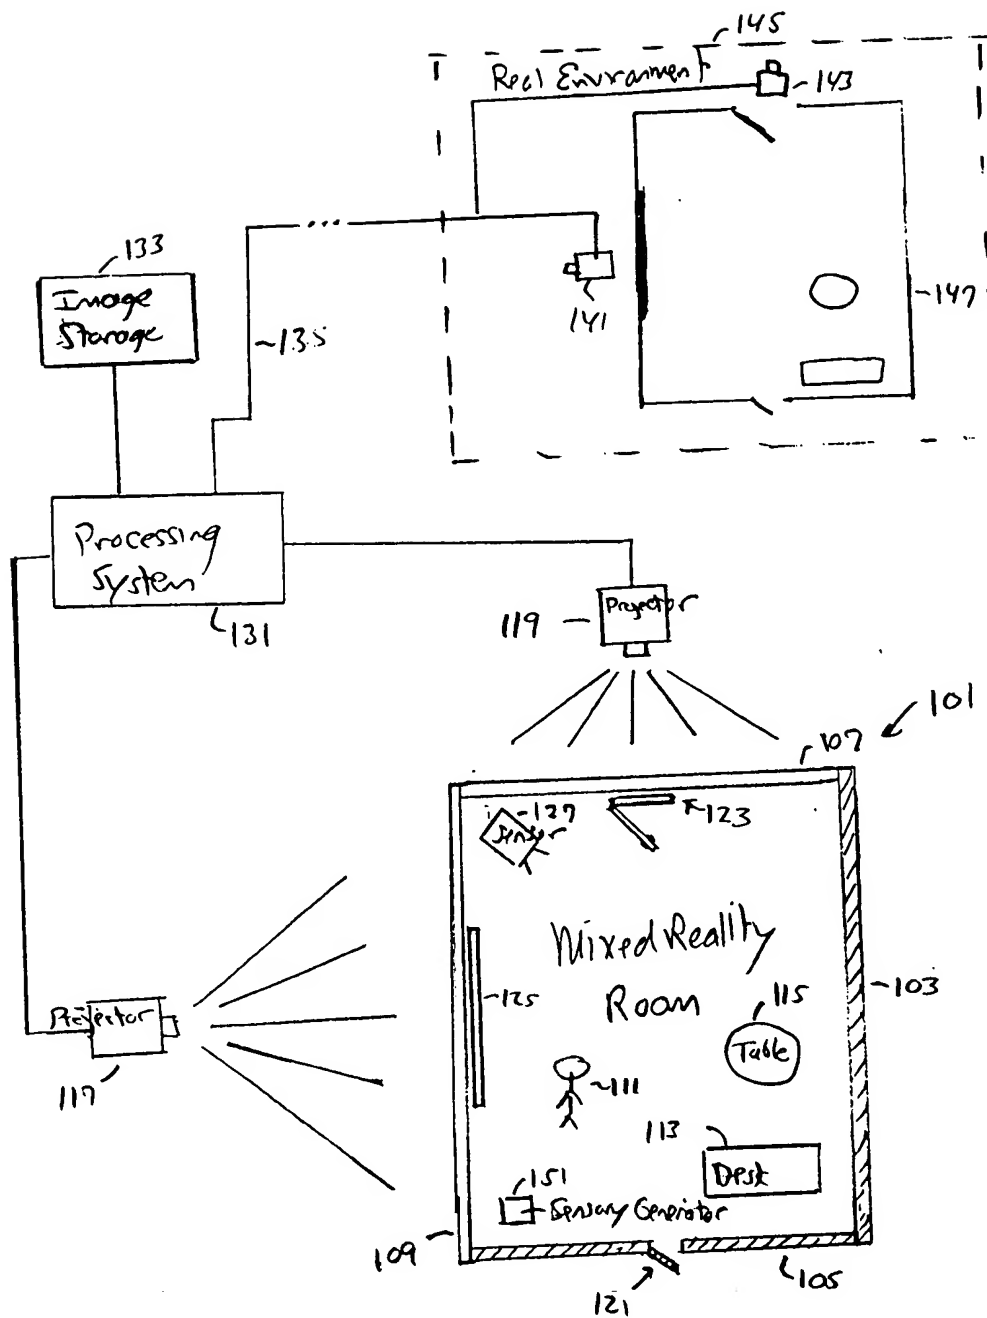 145
Real Environment
143
133
Image
Storage
135
141
147
Processing
System
131
119
Projector
101
107
127
Sensor
123
Mixed Reality
Room
125
103
115
Table
Projector
117
111
113
Desk
151
Sensory Generator
109
105
121